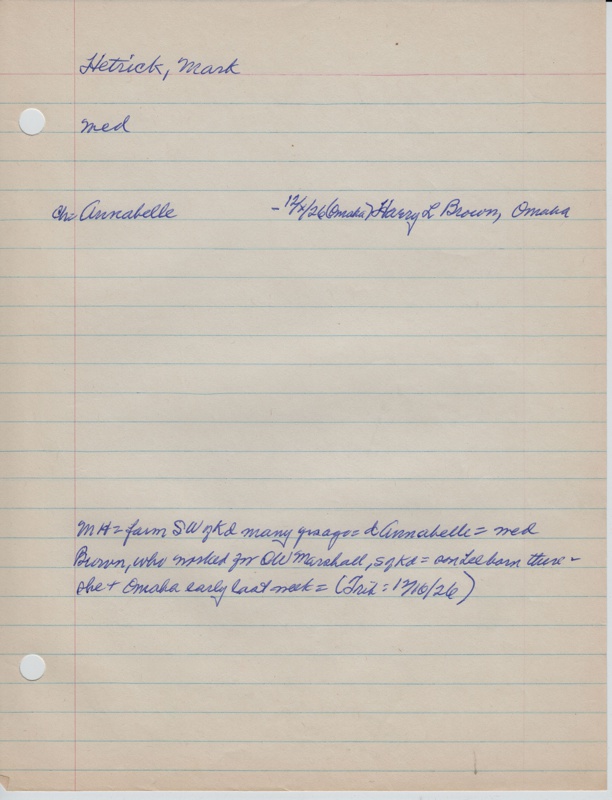 Hetrick, Mark
med
Ch= Annabelle -12/x/26(Omaha) Harry L Brown, Omaha
MH= farm SW of Kd many yrs ago= d Annabelle= med
Brown, who worked for OW Marshall, S of Kd= son Lee born there-
she + Omaha early last week= (Trib: 12/10/26)